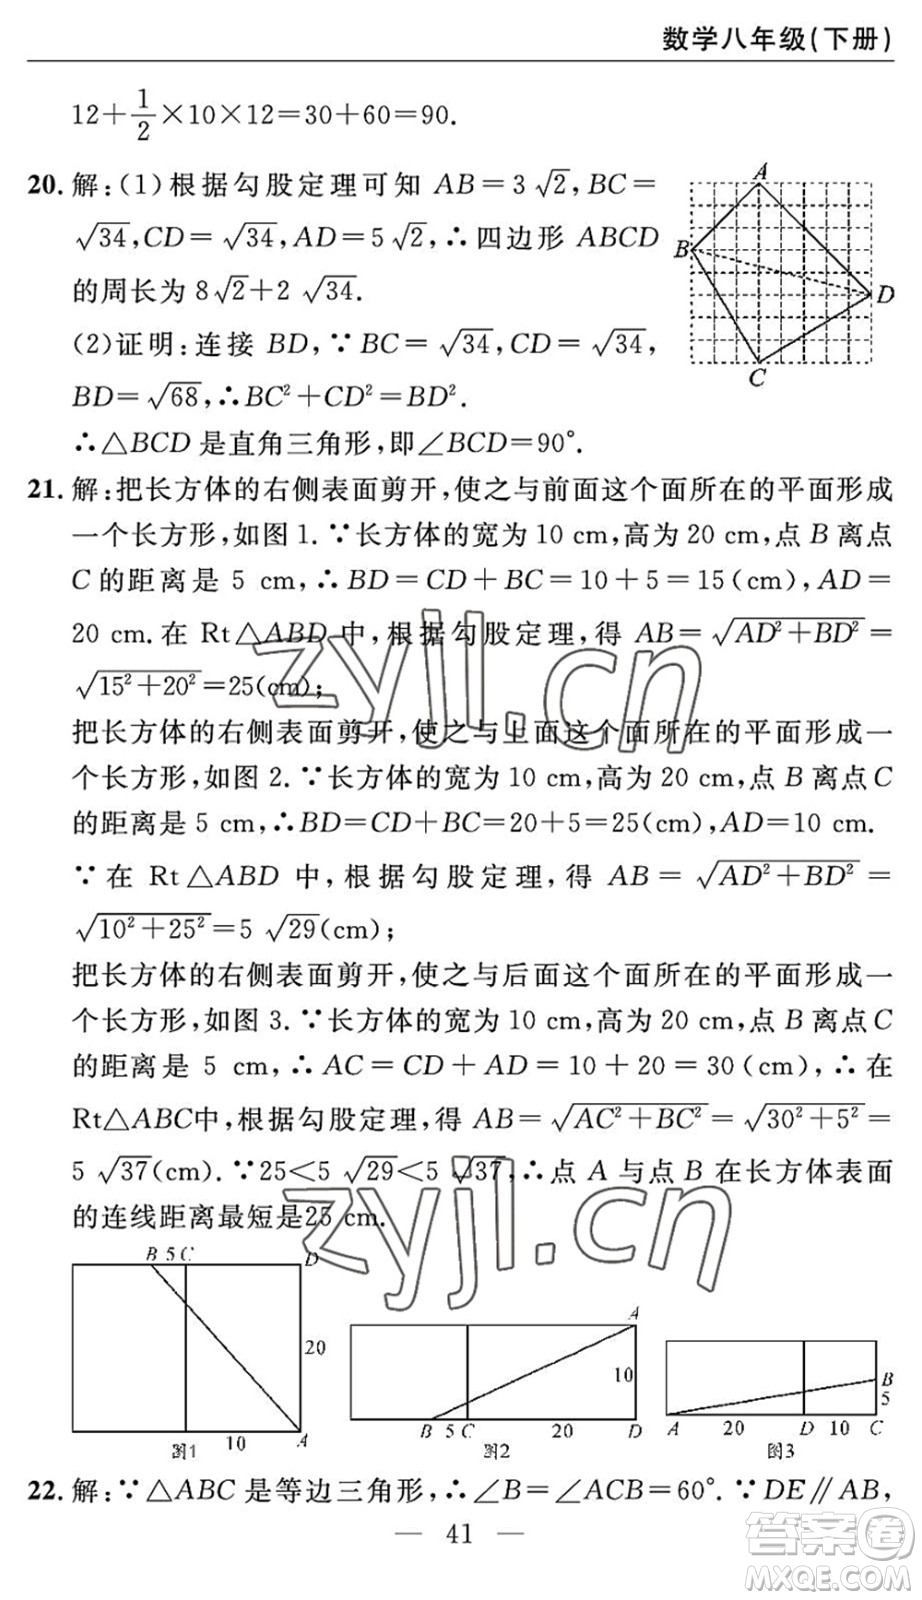 数学八年级(下册)
12+1/2×10×12=30+60=90.
20. 解:(1)根据勾股定理可知 AB=3√2,BC=
√34,CD=√34,AD=5√2,∴四边形 ABCD
的周长为 8√2+2√34.
(2)证明:连接 BD,∵BC=√34,CD=√34,
BD=√68,∴BC²+CD²=BD².
∴△BCD 是直角三角形,即∠BCD=90°.
A
B
D
C
21. 解:把长方体的右侧表面剪开,使之与前面这个面所在的平面形成
一个长方形,如图 1.∵长方体的宽为 10 cm,高为 20 cm,点 B 离点
C 的距离是 5 cm,∴BD=CD+BC=10+5=15(cm),AD=
20 cm.在 Rt△ABD 中,根据勾股定理,得 AB=√(AD²+BD²)=
√(15²+20²)=25(cm);
把长方体的右侧表面剪开,使之与上面这个面所在的平面形成一
个长方形,如图 2.∵长方体的宽为 10 cm,高为 20 cm,点 B 离点 C
的距离是 5 cm,∴BD=CD+BC=20+5=25(cm),AD=10 cm.
∵在 Rt△ABD 中,根据勾股定理,得 AB=√(AD²+BD²)=
√(10²+25²)=5√29(cm);
把长方体的右侧表面剪开,使之与后面这个面所在的平面形成一
个长方形,如图 3.∵长方体的宽为 10 cm,高为 20 cm,点 B 离点 C
的距离是 5 cm,∴AC=CD+AD=10+20=30(cm),∴在
Rt△ABC中,根据勾股定理,得 AB=√(AC²+BC²)=√(30²+5²)=
5√37(cm).∵25<5√29<5√37,∴点 A 与点 B 在长方体表面
的连线距离最短是25 cm.
B 5 C D
20
10 A
图1
A
10
B 5 C 20 D
图2
B
5
A 20 D 10 C
图3
22. 解:∵△ABC 是等边三角形,∴∠B=∠ACB=60°.∵DE∥AB,
— 41 —
zyjl.cn
zyjl.cn
答案圈
MXQE.COM